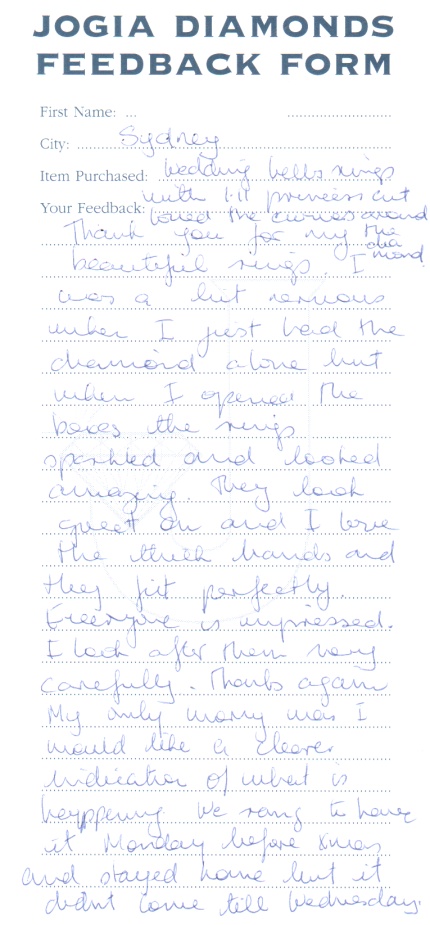 JOGIA DIAMONDS
FEEDBACK FORM
First Name: ...
City: Sydney
Item Purchased: Wedding bells rings
with 1.11 princess cut
Your Feedback: loved the curves around
the
diamond
Thank you for my
beautiful rings. I
was a bit nervous
when I just had the
diamond alone but
when I opened the
boxes the rings
sparkled and looked
amazing. They look
great on and I love
the thick bands and
they fit perfectly.
Everyone is impressed.
I look after them very
carefully. Thanks again
My only worry was I
would like a clearer
indication of what is
happening We rang to have
it Monday before Xmas
and stayed home but it
didnt come till Wednesday.